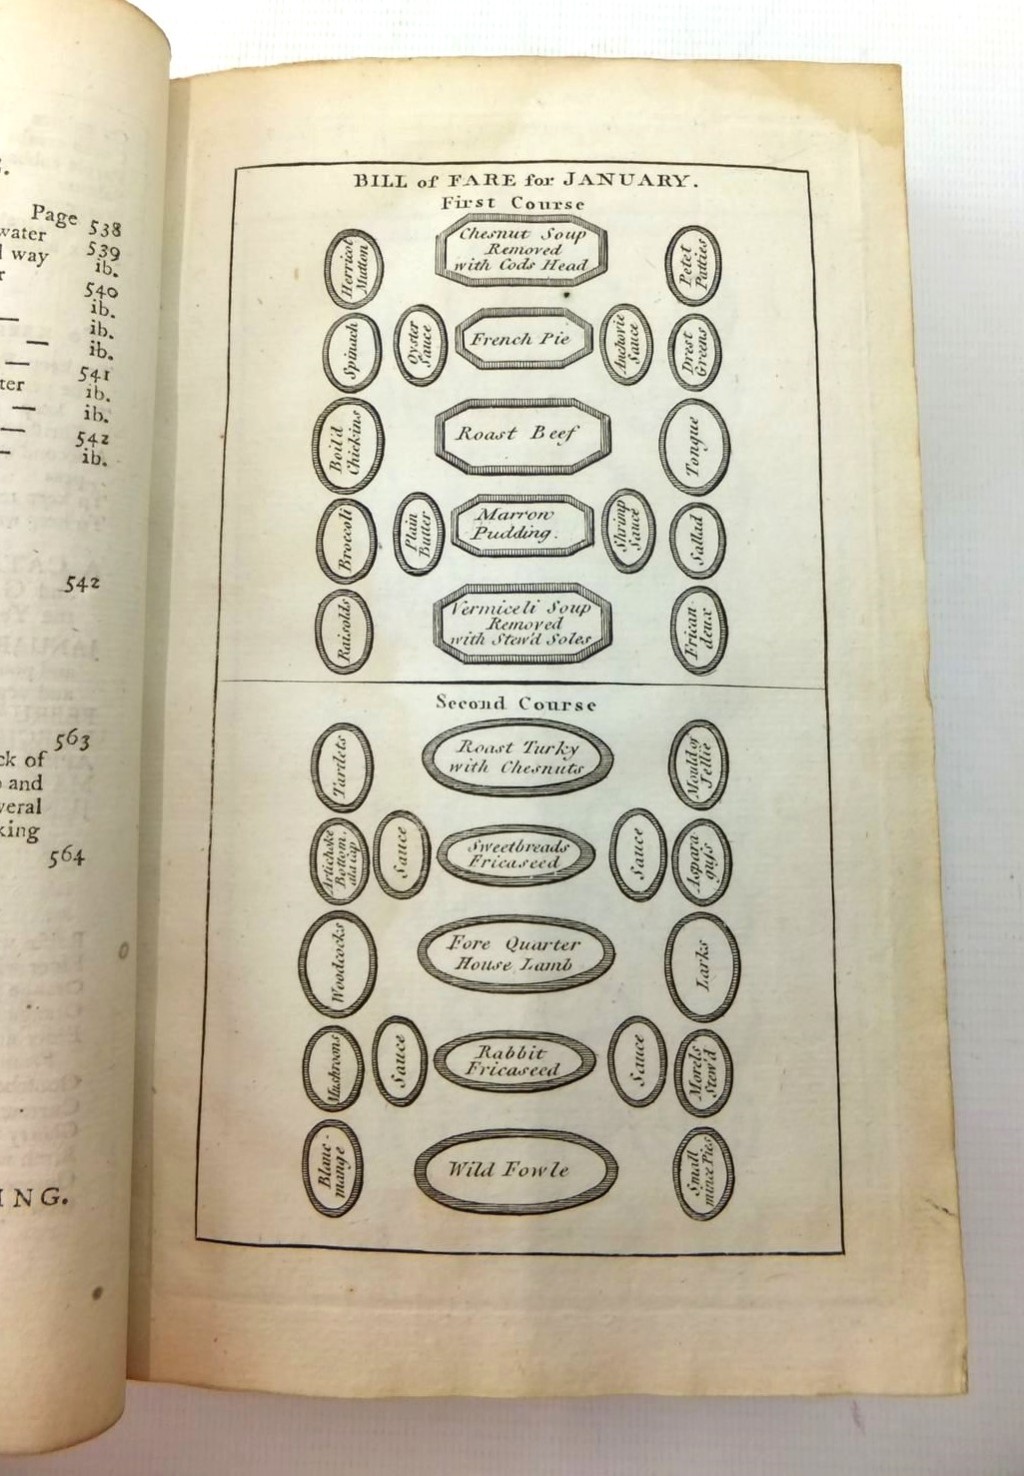 Page 538
water 539
way ib.
540
ib.
ib.
ib.
541
ter ib.
ib.
542
ib.
542
563
ck of
and
veral
king
564
ING.
BILL of FARE for JANUARY.
First Course
Herricot
Mutton
Chesnut Soup
Removed
with Cods Head
Petet
Paties
Spinach
Oyster
Sauce
French Pie
Anchovie
Sauce
Drest
Greens
Boil'd
Chickins
Roast Beef
Tongue
Broccoli
Plain
Butter
Marrow
Pudding.
Shrimp
Sauce
Sallad
Raisolds
Vermiceli Soup
Removed
with Stew'd Soles
Frican-
deux
Second Course
Tartlets
Roast Turky
with Chesnuts
Mould of
Jellie
Artichoke
Bottom.
Sauce
Sweetbreads
Fricaseed
Sauce
Aspara
guſs
Woodcocks
Fore Quarter
House Lamb
Larks
Mushrooms
Sauce
Rabbit
Fricaseed
Sauce
Morels
Stew'd
Blanc-
mange
Wild Fowle
Small
mince Pies